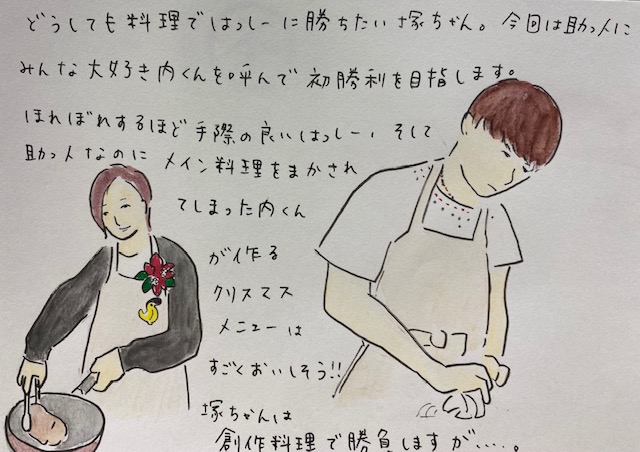 どうしても料理ではっしーに勝ちたい塚ちゃん。今回は助っ人に
みんな大好き内くんを呼んで初勝利を目指します。
ほれぼれするほど手際の良いはっしー、そして
助っ人なのにメイン料理をまかされ
てしまった内くん
が作る
クリスマス
メニューは
すごくおいしそう!!
塚ちゃんは
創作料理で勝負しますが……。